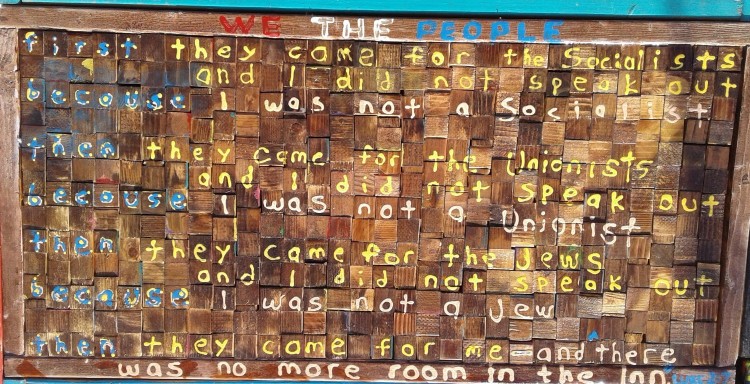 WE THE PEOPLE
first they came for the Socialists
and I did not speak out
because I was not a Socialist
then they came for the Unionists
and I did not speak out
because I was not a
Unionist
then they came for the Jews
and I did not speak out
because I was not a Jew
then they came for me - and there
was no more room in the Inn